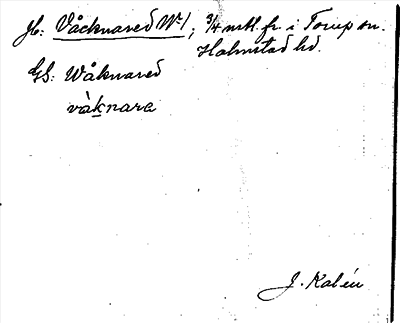 Jb: Våcknared No 1, 3/4 mtl. fr. i Torup sn.
Halmstad hd.
GS: Wåknared
vàknara
J. Kalén